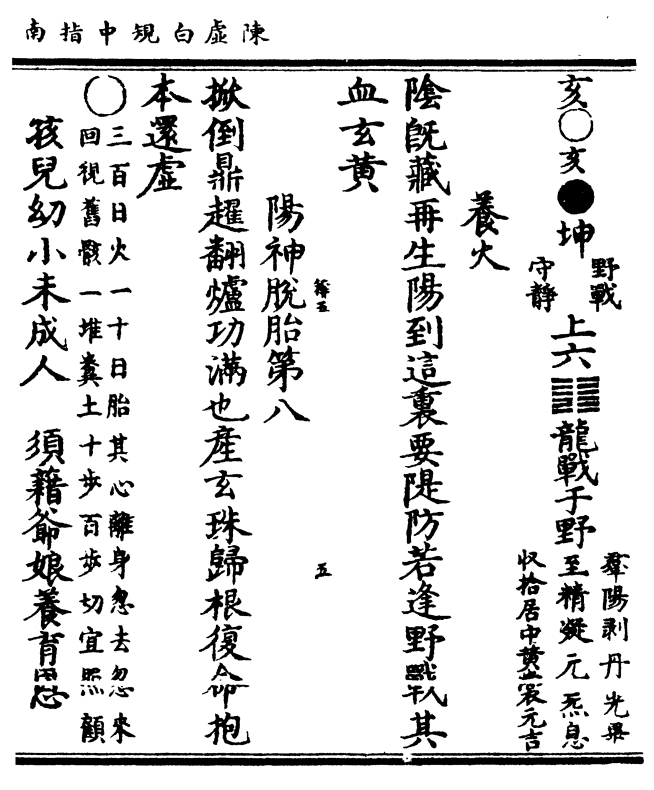 陳虛白規中指南
亥○亥●坤
野戰
守靜
上六䷁龍戰于野
羣陽剥丹光
至精凝元炁息
收拾居中黃
元吉
養火
陰旣藏再生陽到這裏要隄防若逢野戰其
血玄黃
陽神脫胎第八
五
掀倒鼎趯翻爐功滿也產玄珠歸根復命抱
本還虛
○三百日火一十日胎其心離身忽去忽來
回視舊骸一堆糞土十步百步切宜照顧
孩兒幼小未成人　須籍爺娘養育恩